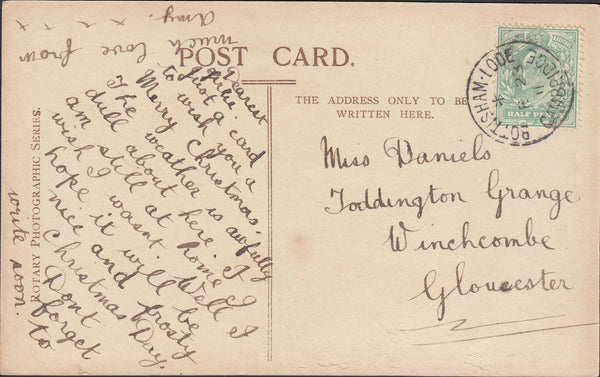 POST CARD.
THE ADDRESS ONLY TO BE
WRITTEN HERE.
ROTARY PHOTOGRAPHIC SERIES.
HALF PENNY
BOTTISHAM-LODE
CAMBRIDGE
Dearest
Just a card
to wish you a
Merry Christmas.
The weather is awfully
dull about here. I
am still at home I
wish I wasnt. Well I
hope it will be
nice and frosty
Christmas Day.
Dont forget
to
write soon.
much love from
Amy.
x x x x
Miss Daniels
Toddington Grange
Winchcombe
Gloucester